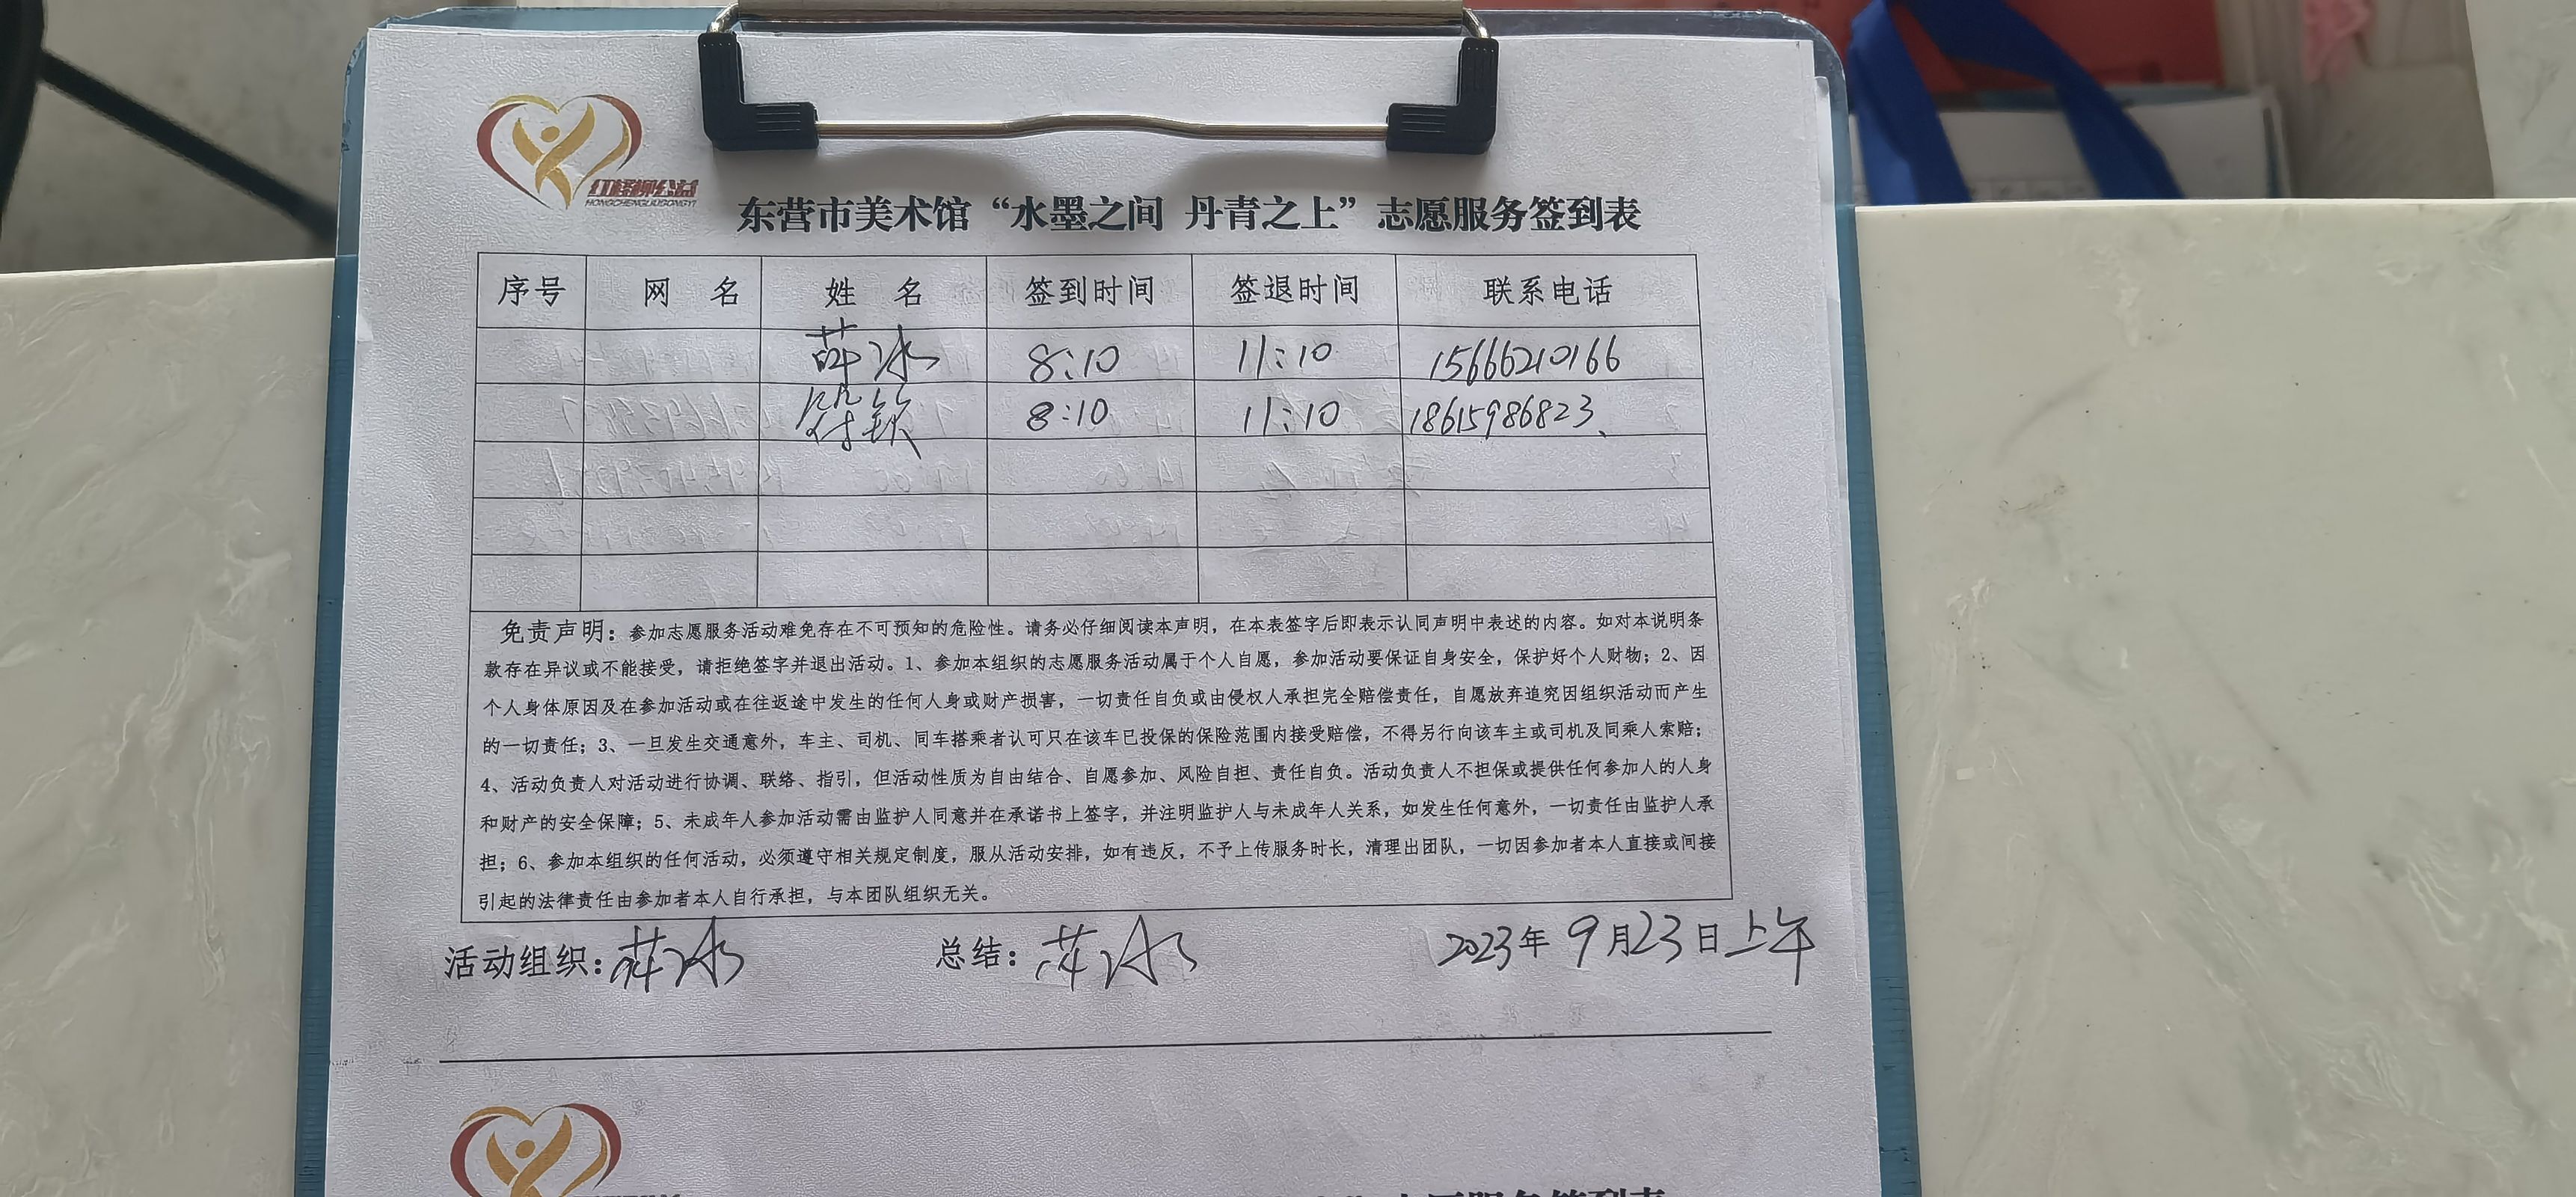 红柽柳公益
HONGCHENGLIUGONGYI
东营市美术馆“水墨之间 丹青之上”志愿服务签到表
序号 网 名 姓 名 签到时间 签退时间 联系电话
薛冰 8:10 11:10 15666210166
8:10 11:10 18615986823、
免责声明：参加志愿服务活动难免存在不可预知的危险性。请务必仔细阅读本声明，在本表签字后即表示认同声明中表述的内容。如对本说明条
款存在异议或不能接受，请拒绝签字并退出活动。1、参加本组织的志愿服务活动属于个人自愿，参加活动要保证自身安全，保护好个人财物；2、因
个人身体原因及在参加活动或在往返途中发生的任何人身或财产损害，一切责任自负或由侵权人承担完全赔偿责任，自愿放弃追究因组织活动而产生
的一切责任；3、一旦发生交通意外，车主、司机、同车搭乘者认可只在该车已投保的保险范围内接受赔偿，不得另行向该车主或司机及同乘人索赔；
4、活动负责人对活动进行协调、联络、指引，但活动性质为自由结合、自愿参加、风险自担、责任自负。活动负责人不担保或提供任何参加人的人身
和财产的安全保障；5、未成年人参加活动需由监护人同意并在承诺书上签字，并注明监护人与未成年人关系，如发生任何意外，一切责任由监护人承
担；6、参加本组织的任何活动，必须遵守相关规定制度，服从活动安排，如有违反，不予上传服务时长，清理出团队，一切因参加者本人直接或间接
引起的法律责任由参加者本人自行承担，与本团队组织无关。
活动组织：薛冰 总结：薛冰 2023年9月23日上午